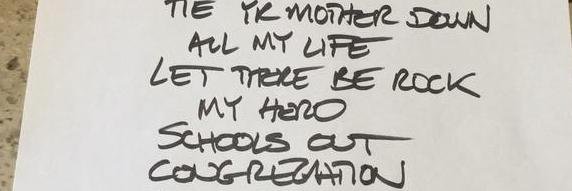 TIE YR MOTHER DOWN
ALL MY LIFE
LET THERE BE ROCK
MY HERO
SCHOOLS OUT
CONGREGATION